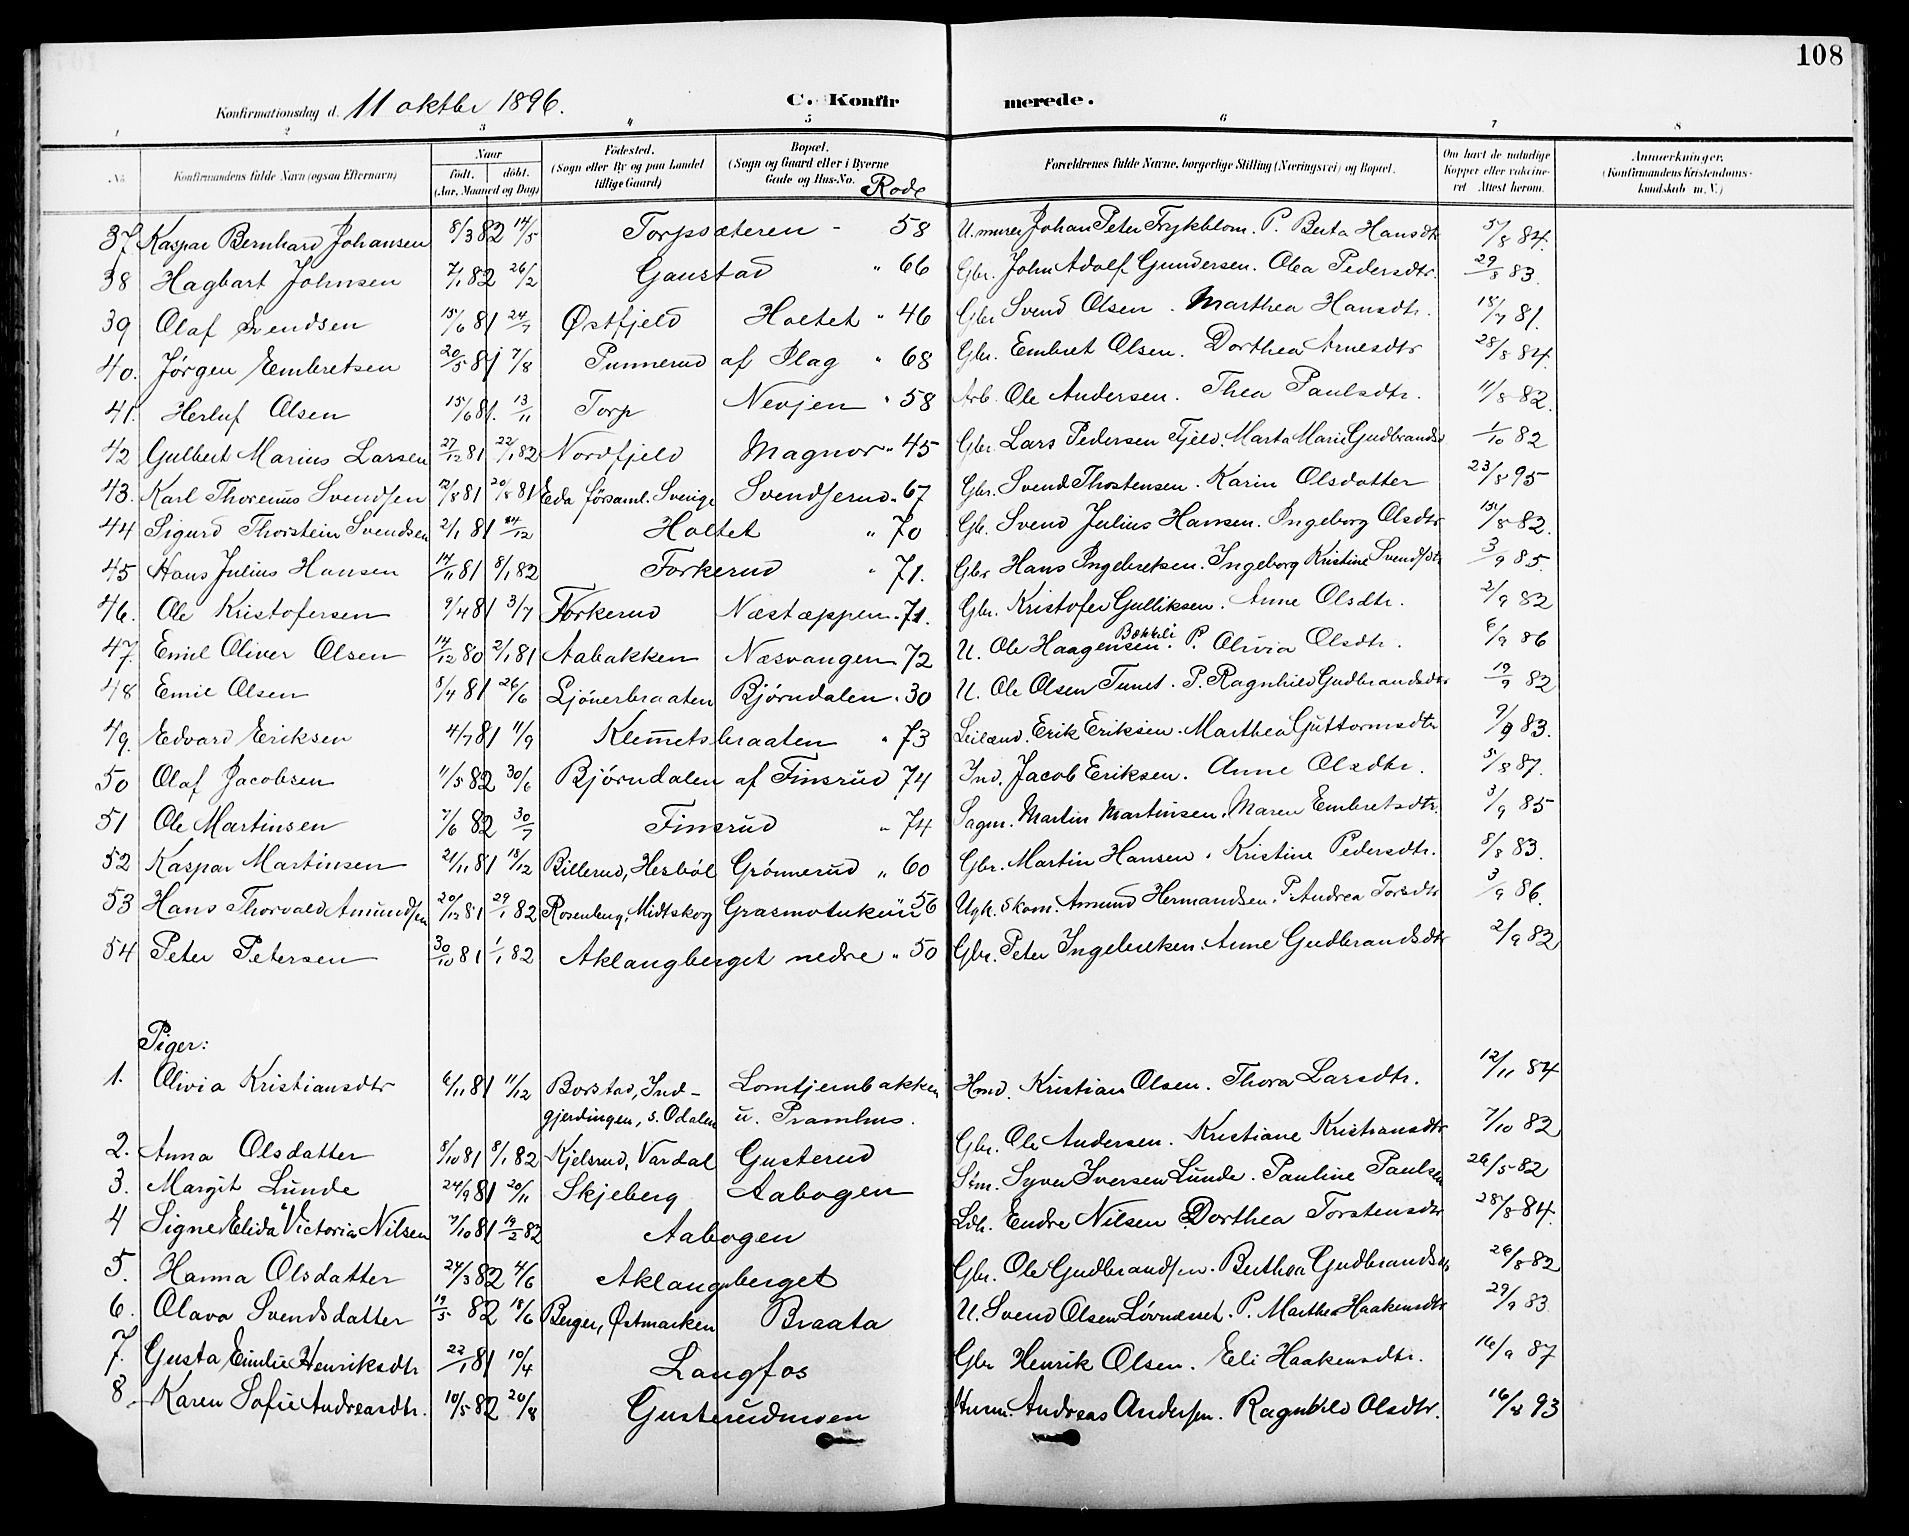 108
Konfirmationsdag d. 11 oktbr 1896. C. Konfir merede.
1 2 3 4 5 6 7 8
No. Konfirmandens fulde Navn (ogsaa Efternavn) Naar født. døbt. (Aar, Maaned og Dag) Fødested. (Sogn eller By og paa Landet tillige Gaard) Bopæl. (Sogn og Gaard eller i Byerne Gade og Hus-No. Rode Forældrenes fulde Navne, borgerlige Stilling (Næringsvei) og Bopæl. Om havt de naturlige Kopper eller vakcineret Attest herom. Anmærkninger. (Konfirmandens Kristendomskundskab m. V.)
37. Kaspar Bernhard Johansen 8/3 82 14/5 Torpsæteren - 58 U. murer Johan Peter Frykblom. P. Berta Hansdtr 5/8 84.
38 Hagbart Johnsen 7/1 82 26/2 Gaustad " 66 Gbr. John Adolf Gundersen. Olea Pedersdtr. 29/8 83.
39 Olaf Svendsen 15/6 81 24/7 Østfjeld Holtet " 46 Gbr Svend Olsen. Marthea Hansdtr. 18/7 81.
40. Jørgen Embretsen 20/5 81 7/8 Punnerud af Plag " 68 Gbr. Embret Olsen. Dorthea Arnesdtr 28/8 84.
41. Herluf Olsen 15/6 81. 13/11 Torp Nevjen " 58 Arb. Ole Andersen. Thea Paulsdtr. 11/8 82.
42 Gulbert Marius Larsen 27/12 81 22/1 82 Nordfjeld Magnor " 45 Gbr. Lars Pedersen Fjeld. Marta Marie Gudbrandsd 1/10 82
43. Karl Thorenius Svendsen 12/8 81 20/8 81 Eda församl. Sverige Svendserud " 67 Gbr. Svend Thostensen. Karin Olsdatter 23/8 95
44 Sigurd Thorstein Svendsen 2/1 81 24/12 Holtet " 70 Gb. Svend Julius Hansen. Ingeborg Olsdtr 15/8 82.
45 Hans Julius Hansen 14/11 81 8/1 82 Forkerud " 71. Gbr Hans Ingebretsen. Ingeborg Kristine Svendsdtr 3/9 85.
46. Ole Kristofersen 9/4 81 3/7 Forkerud Næstæppen " 71. Gbr. Kristofer Gulliksen. Anne Olsdtr. 2/9 82
47. Emil Oliver Olsen 14/12 80 2/1 81 Aabakken Næsvangen 72 U. Ole Haagensen Bækkeli. P. Olivia Olsdtr. 6/9 86
48 Emil Olsen 8/4 81 26/6 Ljönerbraaten Bjørndalen " 30 U. Ole Olsen Tunet. P. Ragnhild Gudbrandsdtr 19/9 82
49. Edvard Eriksen 4/7 81 11/9 Klemetsbraaten " 73 Leilænd. Erik Eriksen. Marthea Guttormsdtr 9/9 83.
50 Olaf Jacobsen 11/5 82 30/6 Bjørndalen af Finsrud 74 Ind. Jacob Eriksen. Anne Olsdtr. 5/8 87.
51 Ole Martinsen 7/6 82 30/7 Finsrud " 74 Sagm. Martin Martinsen. Maren Embretsdtr. 3/9 85
52 Kaspar Martinsen 21/11 81 18/12 Billerud, Hesbøl Grønnerud " 60 Gbr. Martin Hansen. Kristine Pedersdtr. 8/8 83.
53 Hans Thorvald Amundsen 20/12 81 29/1 82 Rosenberg, Midtskog Grasmotukün 56 Ugk. skom. Amund Hermandsen. P. Andrea Torsdtr 3/9 86.
54 Peter Petersen 30/10 81 1/1 82 Aklangberget nedre " 50 Gbr. Peter Ingebretsen. Anne Gudbrandsdtr 2/9 82
Piger:
1. Olivia Kristiansdtr 6/11 81 11/12 Borstad, Ind- Lomtjernbakken Hmd. Kristian Olsen. Thora Larsdtr. 12/11 84
gjerdingen, s. Odalen u. Pramhus.
2. Anna Olsdatter 8/10 81 8/1 82 Kjelsrud, Vardal Gusterud Gbr. Ole Andersen. Kristiane Kristiansdtr 7/10 82
3. Margit Lunde 24/9 81 20/11 Skjeberg Aabogen Syver Iversen Lunde. Pauline Paulsen 26/5 82
4 Signe Elida Victoria Nilsen 7/10 81 19/2 82 Aabogen Ldh. Endre Nilsen Dorthea Torstensdtr 28/8 84.
5. Hanna Olsdatter 24/3 82 4/6 Aklangberget Gbr. Ole Gudbrandsen. Berthea Gudbrandsdtr 26/8 82
6. Olava Svendsdatter 19/5 82 18/6 Berger, Østmarken Braata U. Svend Olsen Løvnæset. P. Marthea Haakensdtr 29/9 83
7. Gusta Emilie Henriksdtr 22/1 81 10/4 Langfos Gbr Henrik Olsen. Eli Haakensdtr. 16/9 87
8. Karen Sofie Andreasdtr. 10/5 82 20/8 Gusterudmoen Husm. Andreas Andersen. Ragnhild Olsdtr. 16/8 93